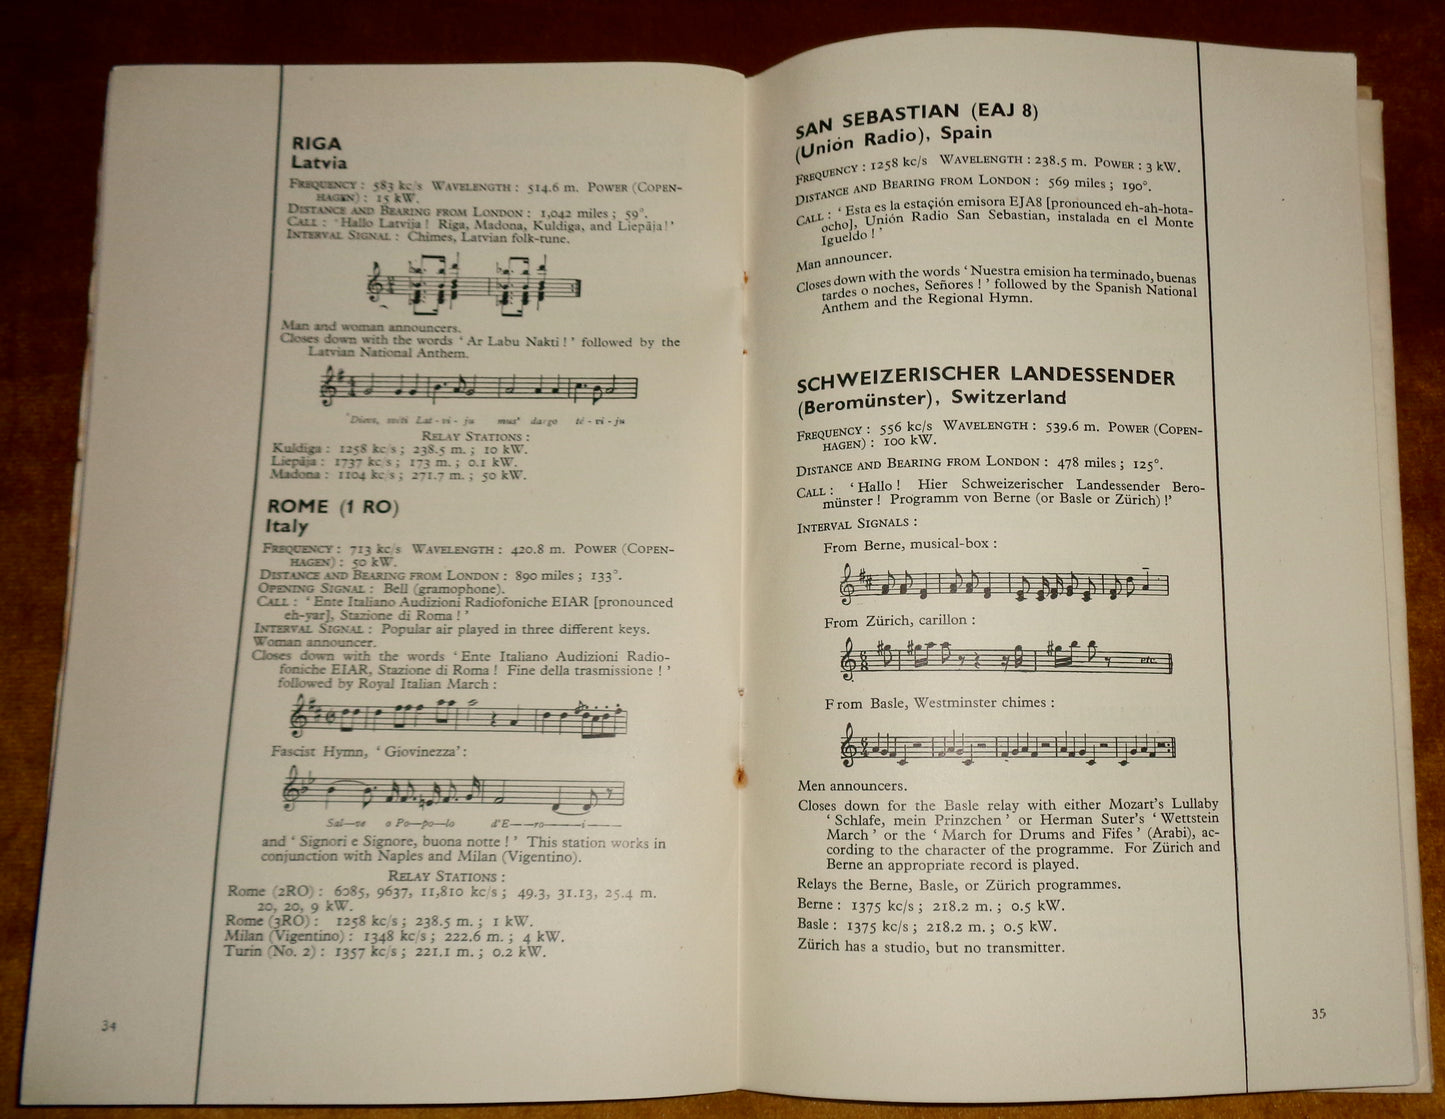 RIGA
Latvia
FREQUENCY : 583 kc/s WAVELENGTH : 514.6 m. POWER (COPEN-
HAGEN) : 15 kW.
DISTANCE AND BEARING FROM LONDON : 1,042 miles ; 59°.
CALL : ‘ Hallo Latvija ! Riga, Madona, Kuldiga, and Liepāja!’
INTERVAL SIGNAL : Chimes, Latvian folk-tune.
Man and woman announcers.
Closes down with the words ‘ Ar Labu Nakti ! ’ followed by the
Latvian National Anthem.
Dievs, svēti Lat - vi - ju mus’ dargo tē - vi - ju
RELAY STATIONS :
Kuldiga : 1258 kc/s ; 238.5 m. ; 10 kW.
Liepāja : 1737 kc/s ; 173 m. ; 0.1 kW.
Madona : 1104 kc/s ; 271.7 m. ; 50 kW.
ROME (1 RO)
Italy
FREQUENCY : 713 kc/s WAVELENGTH : 420.8 m. POWER (COPEN-
HAGEN) : 50 kW.
DISTANCE AND BEARING FROM LONDON : 890 miles ; 133°.
OPENING SIGNAL : Bell (gramophone).
CALL : ‘ Ente Italiano Audizioni Radiofoniche EIAR [pronounced
eh-yar], Stazione di Roma ! ’
INTERVAL SIGNAL : Popular air played in three different keys.
Woman announcer.
Closes down with the words ‘ Ente Italiano Audizioni Radio-
foniche EIAR, Stazione di Roma ! Fine della trasmissione ! ’
followed by Royal Italian March :
Fascist Hymn, ‘ Giovinezza’ :
Sal—ve o Po—po—lo d’E——ro———i———
and ‘ Signori e Signore, buona notte ! ’ This station works in
conjunction with Naples and Milan (Vigentino).
RELAY STATIONS :
Rome (2RO) : 6085, 9637, 11,810 kc/s ; 49.3, 31.13, 25.4 m.
20, 20, 9 kW.
Rome (3RO) : 1258 kc/s ; 238.5 m. ; 1 kW.
Milan (Vigentino) : 1348 kc/s ; 222.6 m. ; 4 kW.
Turin (No. 2) : 1357 kc/s ; 221.1 m. ; 0.2 kW.
34
SAN SEBASTIAN (EAJ 8)
(Unión Radio), Spain
FREQUENCY : 1258 kc/s WAVELENGTH : 238.5 m. POWER : 3 kW.
DISTANCE AND BEARING FROM LONDON : 569 miles ; 190°.
CALL : ‘ Esta es la estación emisora EJA8 [pronounced eh-ah-hota-
ocho], Unión Radio San Sebastian, instalada en el Monte
Igueldo ! ’
Man announcer.
Closes down with the words ‘ Nuestra emision ha terminado, buenas
tardes o noches, Señores ! ’ followed by the Spanish National
Anthem and the Regional Hymn.
SCHWEIZERISCHER LANDESSENDER
(Beromünster), Switzerland
FREQUENCY : 556 kc/s WAVELENGTH : 539.6 m. POWER (COPEN-
HAGEN) : 100 kW.
DISTANCE AND BEARING FROM LONDON : 478 miles ; 125°.
CALL : ‘ Hallo ! Hier Schweizerischer Landessender Bero-
münster ! Programm von Berne (or Basle or Zürich) !’
INTERVAL SIGNALS :
From Berne, musical-box :
From Zürich, carillon :
etc.
From Basle, Westminster chimes :
Men announcers.
Closes down for the Basle relay with either Mozart’s Lullaby
‘ Schlafe, mein Prinzchen ’ or Herman Suter’s ‘ Wettstein
March ’ or the ‘ March for Drums and Fifes ’ (Arabi), ac-
cording to the character of the programme. For Zürich and
Berne an appropriate record is played.
Relays the Berne, Basle, or Zürich programmes.
Berne : 1375 kc/s ; 218.2 m. ; 0.5 kW.
Basle : 1375 kc/s ; 218.2 m. ; 0.5 kW.
Zürich has a studio, but no transmitter.
35